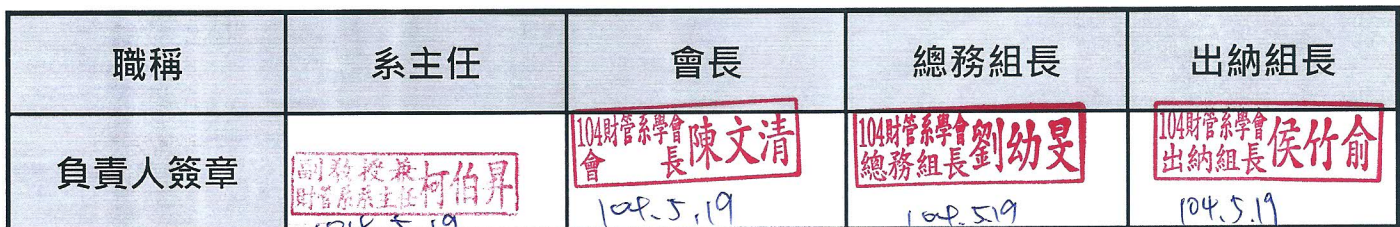 職稱
系主任
會長
總務組長
出納組長
負責人簽章
副教授兼
財管系系主任
柯伯昇
104.5.19
104財管系學會
會長
陳文清
104.5.19
104財管系學會
總務組長
劉幼旻
104.5.19
104財管系學會
出納組長
侯竹俞
104.5.19